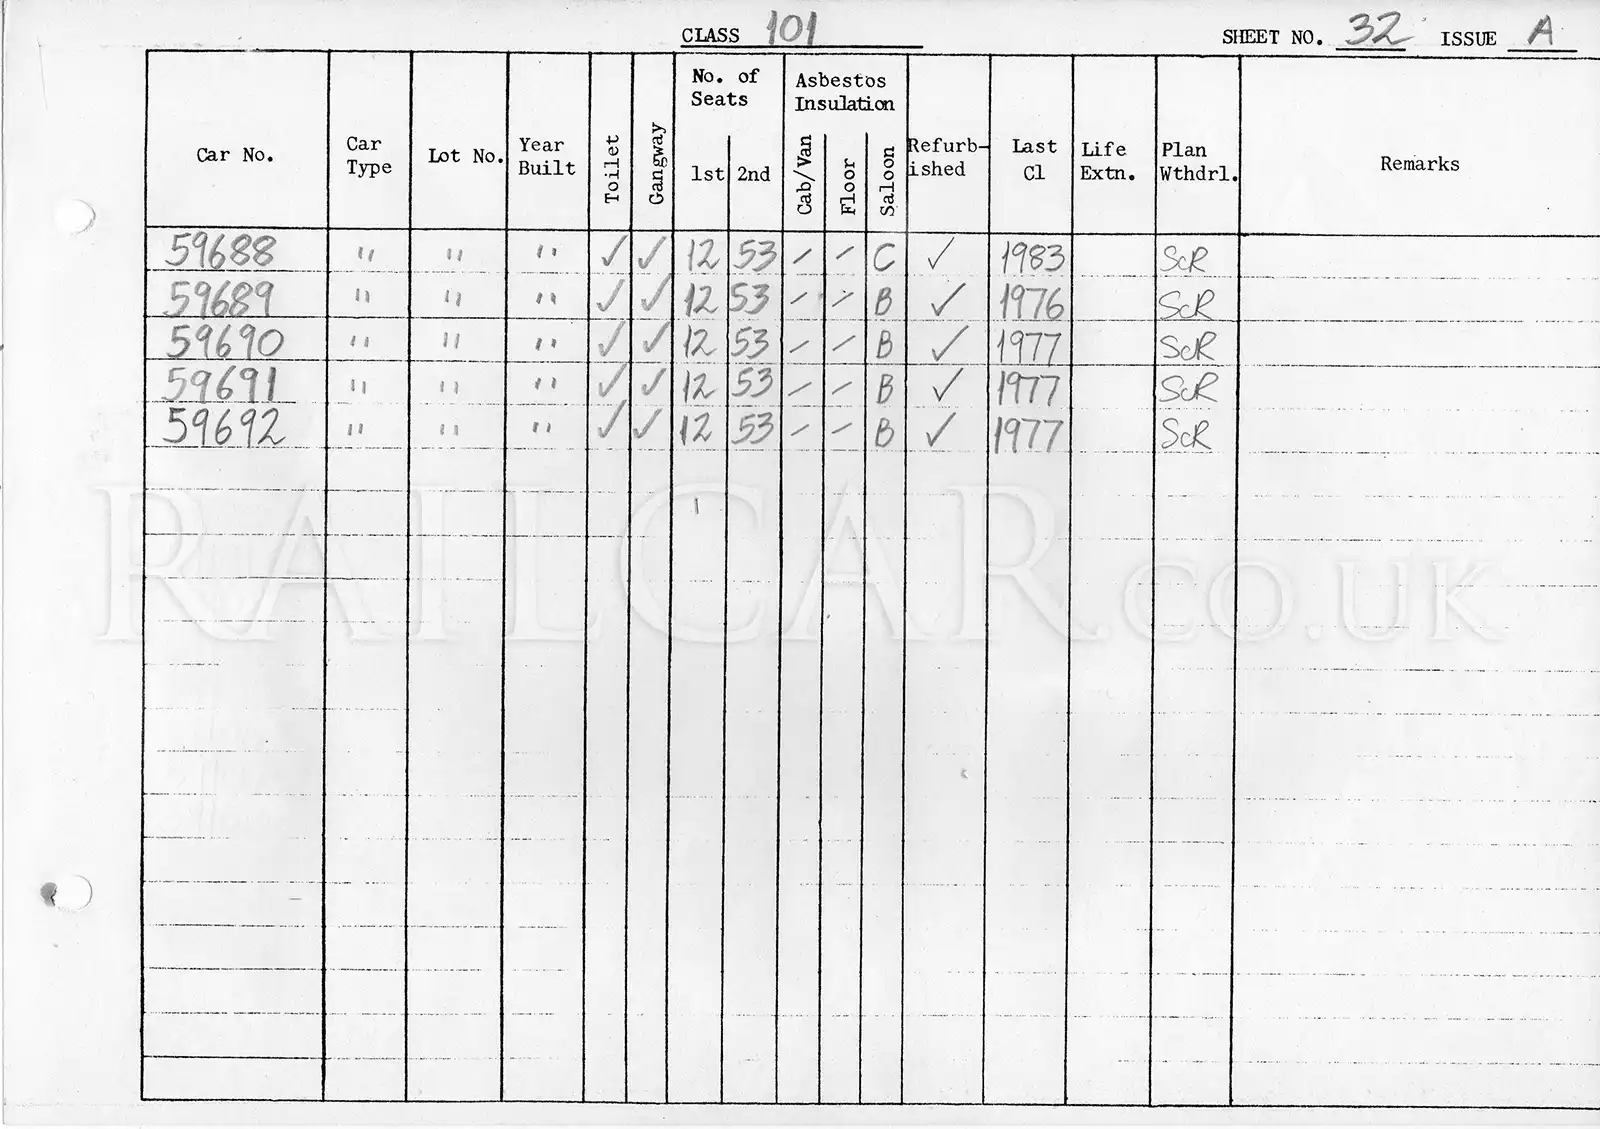 CLASS 101 SHEET NO. 32 ISSUE A
No. of Seats Asbestos Insulation
Car No. Car Type Lot No. Year Built Toilet Gangway 1st 2nd Cab/Van Floor Saloon Refurb-ished Last Cl Life Extn. Plan Wthdrl. Remarks
59688 " " " ✓ ✓ 12 53 - - C ✓ 1983 ScR
59689 " " " ✓ ✓ 12 53 - - B ✓ 1976 ScR
59690 " " " ✓ ✓ 12 53 - - B ✓ 1977 ScR
59691 " " " ✓ ✓ 12 53 - - B ✓ 1977 ScR
59692 " " " ✓ ✓ 12 53 - - B ✓ 1977 ScR
RAILCAR.CO.UK